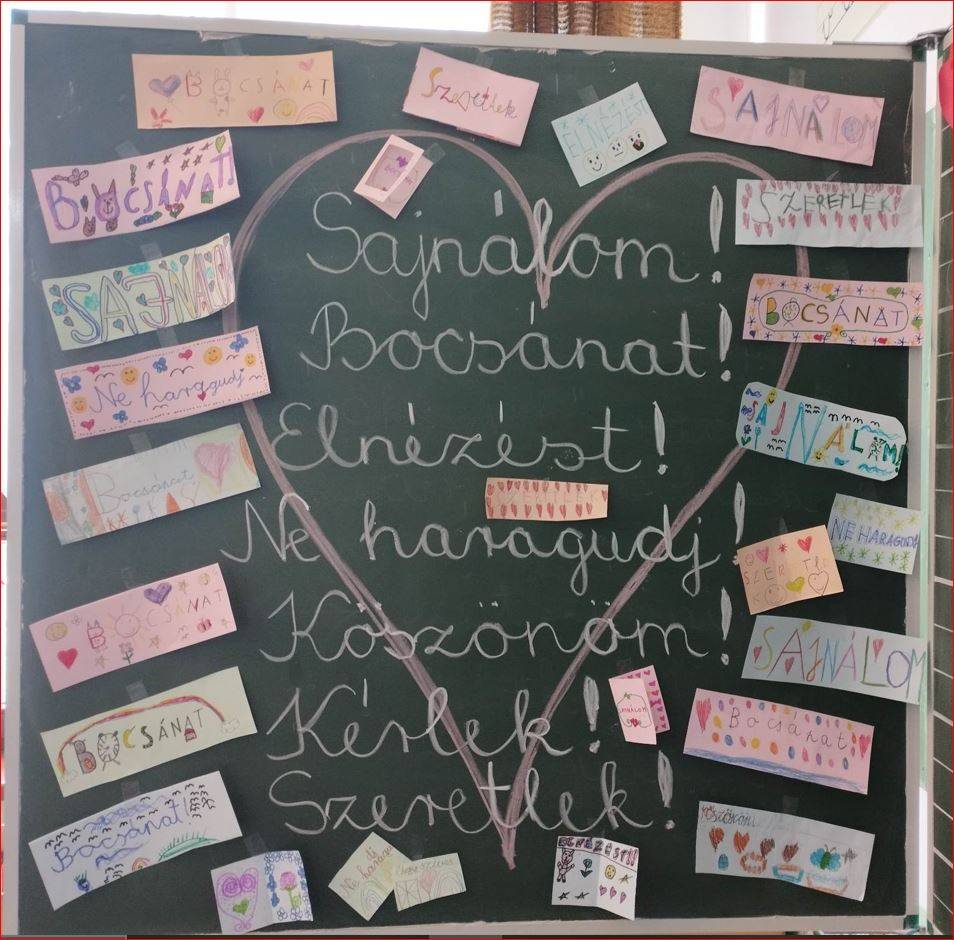 BOCSÁNAT
Szeretlek
ELNÉZÉST
SAJNÁLOM
BOCSÁNAT!
SZERETLEK!
Sajnálom!
SAJNÁLOM
BOCSÁNAT
Bocsánat!
Ne haragudj
SAJNÁLOM!
Elnézést!
Bocsánat
NE HARAGUDJ
Ne haragudj!
BOCSÁNAT
SAJNÁLOM
Köszönöm!
SAJNÁLOM
Kérlek!
BOCSÁNAT
Bocsánat
Szeretlek!
Bocsánat!
Köszönöm
ELNÉZÉST!